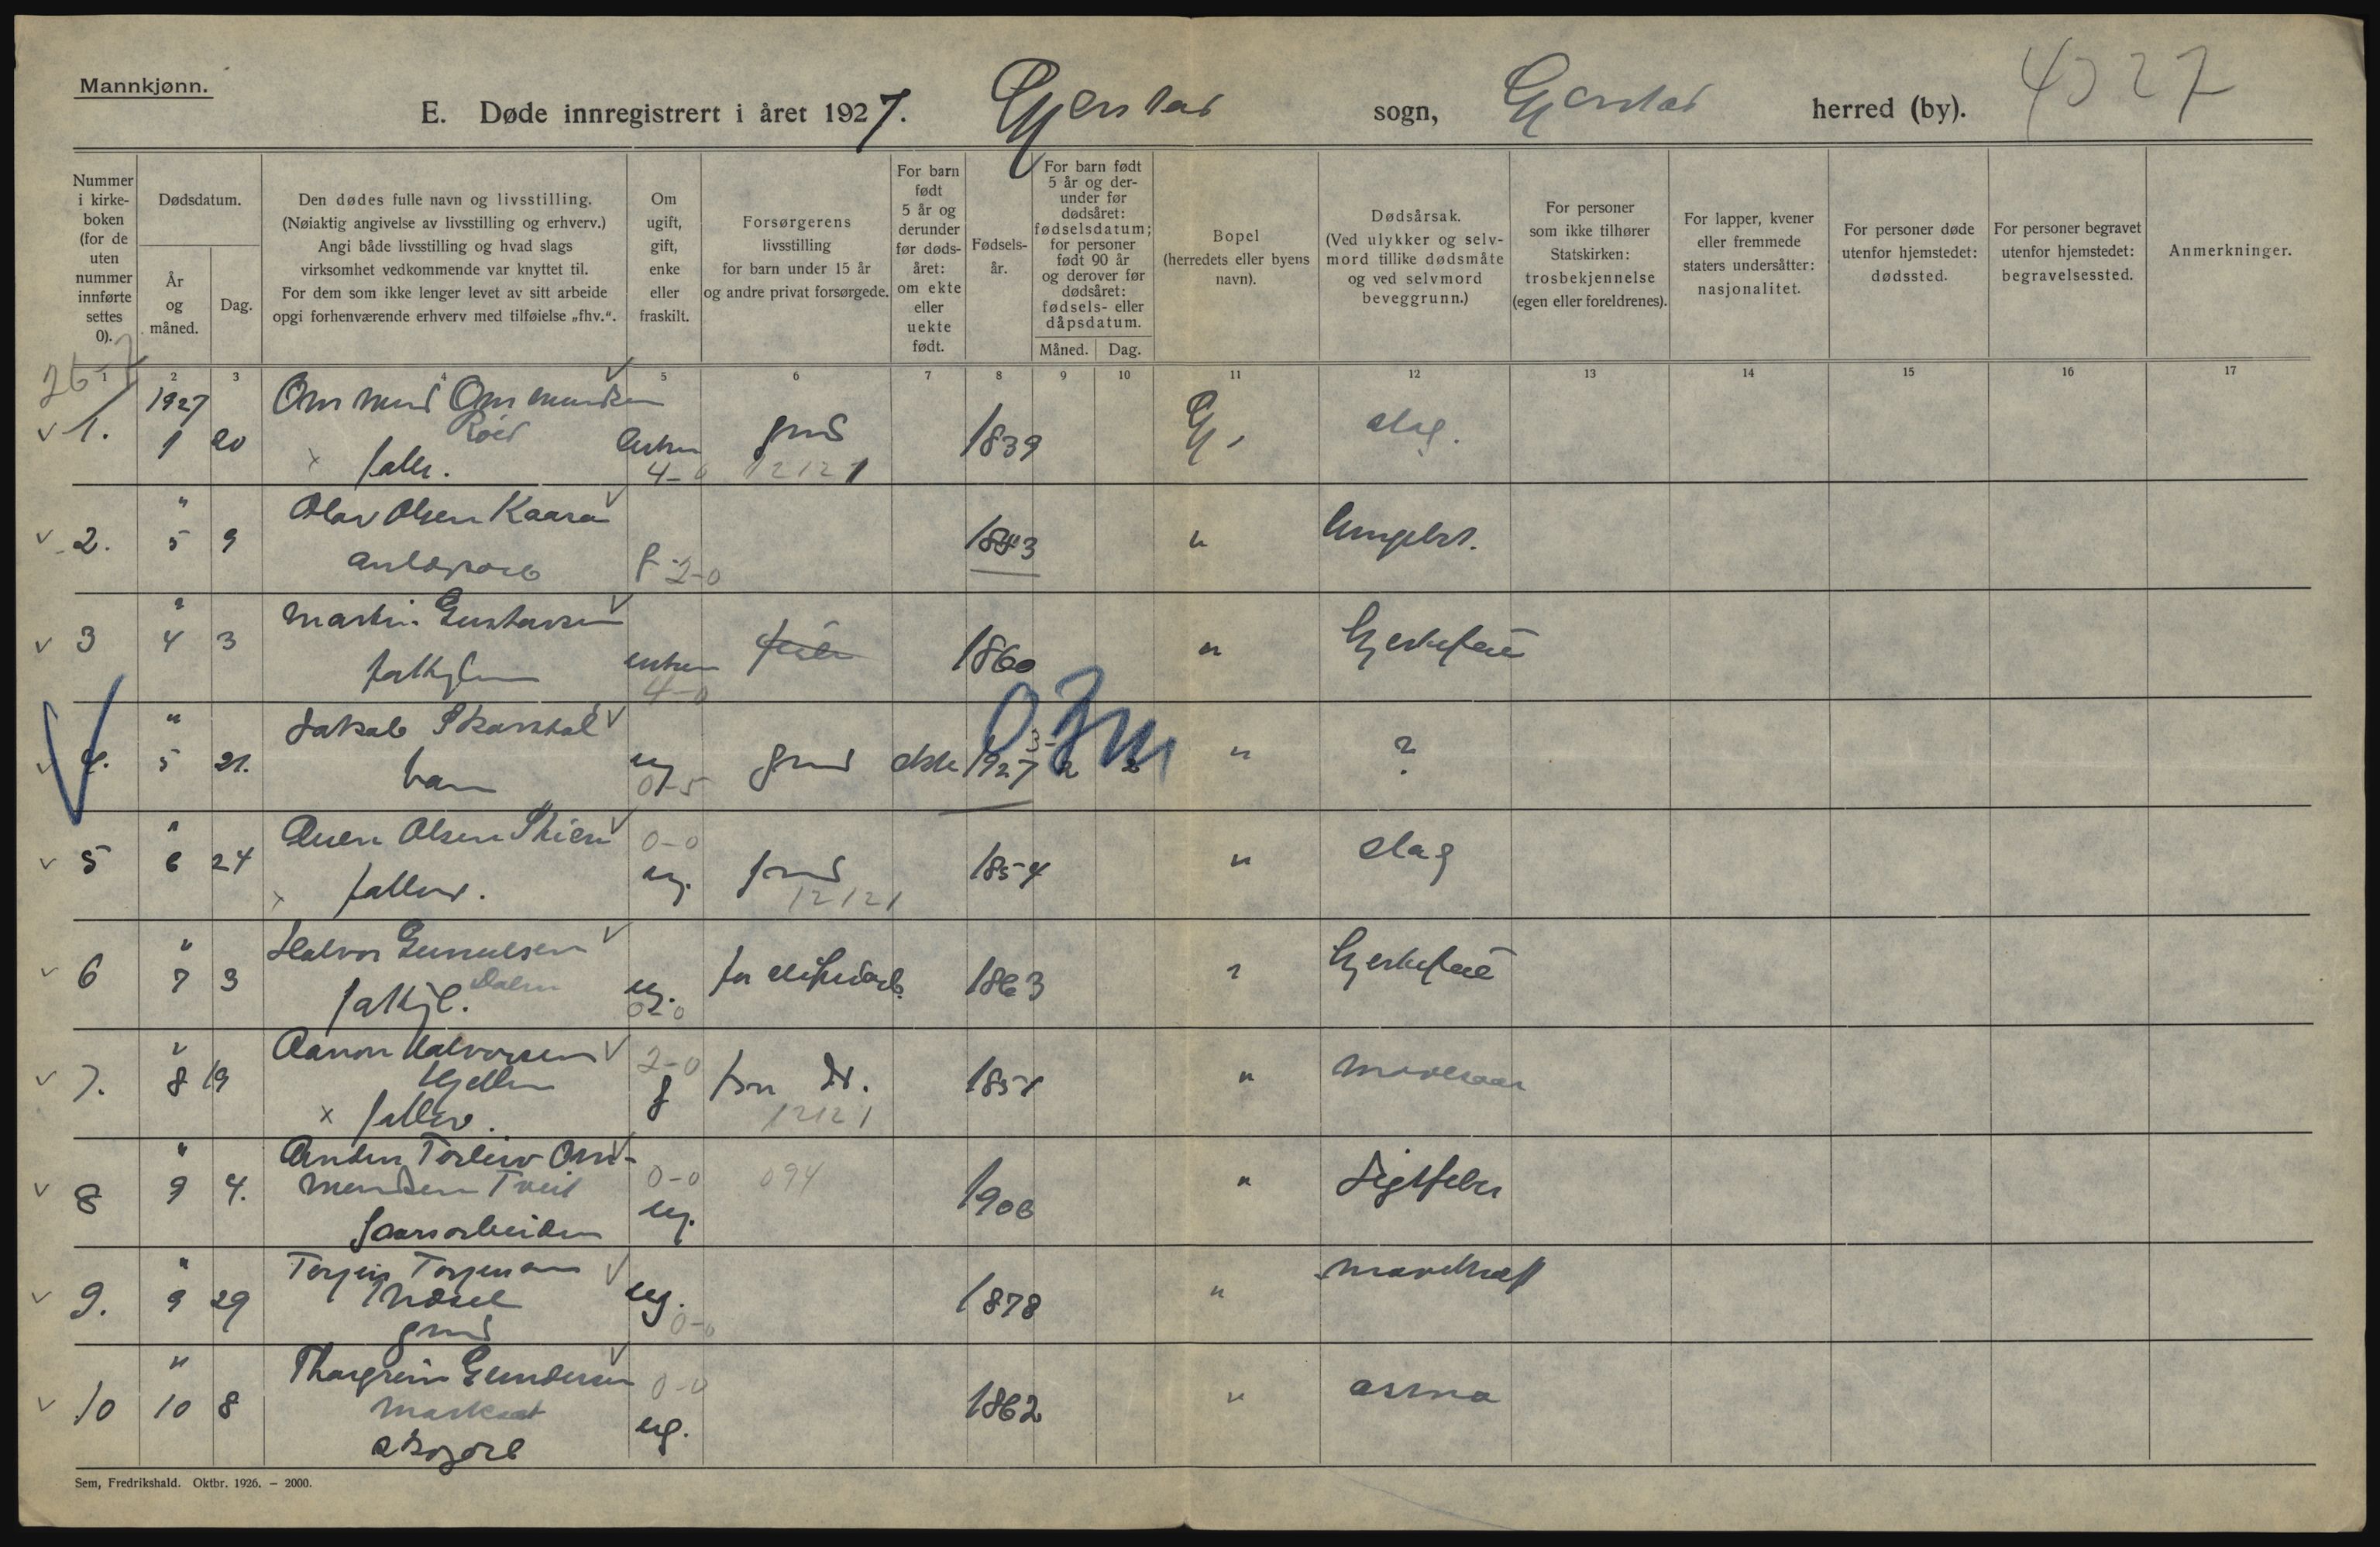 Mannkjønn.
E. Døde innregistrert i året 1927. Gjerstad sogn, Gjerstad herred (by).
Nummer i kirkeboken (for de uten nummer innførte settes 0).
Dødsdatum.
År og måned.
Dag.
Den dødes fulle navn og livsstilling.
(Nøiaktig angivelse av livsstilling og erhverv.)
Angi både livsstilling og hvad slags
virksomhet vedkommende var knyttet til.
For dem som ikke lenger levet av sitt arbeide
opgi forhenværende erhverv med tilføielse „fhv.“.
Om ugift, gift, enke eller fraskilt.
Forsørgerens livsstilling for barn under 15 år og andre privat forsørgede.
For barn født 5 år og derunder før dødsåret: om ekte eller uekte født.
Fødselsår.
For barn født 5 år og derunder før dødsåret: fødselsdatum; for personer født 90 år og derover før dødsåret: fødsels- eller dåpsdatum.
Måned. Dag.
Bopel (herredets eller byens navn).
Dødsårsak.
(Ved ulykker og selvmord tillike dødsmåte og ved selvmord beveggrunn.)
For personer som ikke tilhører Statskirken: trosbekjennelse (egen eller foreldrenes).
For lapper, kvener eller fremmede staters undersåtter: nasjonalitet.
For personer døde utenfor hjemstedet: dødssted.
For personer begravet utenfor hjemstedet: begravelsessted.
Anmerkninger.
1 2 3 4 5 6 7 8 9 10 11 12 13 14 15 16 17
1927
Ommund Ommundsen
Roed
1. 1 20 enkem 1839 Gj. slag.
4-0 12121
" Olav Olsen Kaasa
2. 5 9 1843 "
g 2-0
" Martin Gustavsen
3 4 3 enkem 1860 " Hjertefeil
4-0
" Jakob
4. 5 21. barn ug grd ekte 1927 2 " ?
0-5
" Olsen
5 6 24 ug. 0-0 1854 " slag
12121
" Halvor Gunnulsen
Dalen
6 7 3 ug. 1863 " Hjertefeil
0-0
" Aanon Halvorsen
7. 8 19 2-0 g 1851 " mavesaar
12121
" Anders Torleiv Om-
mundsen Tveit
8 9 4. 0-0 ug. 094 1906 "
" Torjus
9. 9 29 ug. 0-0 1878 " mavekræft
grd
" Gundersen
10 10 8 0-0 ug. 1862 " asma
skogarb
Sem, Fredrikshald. Oktbr. 1926. – 2000.